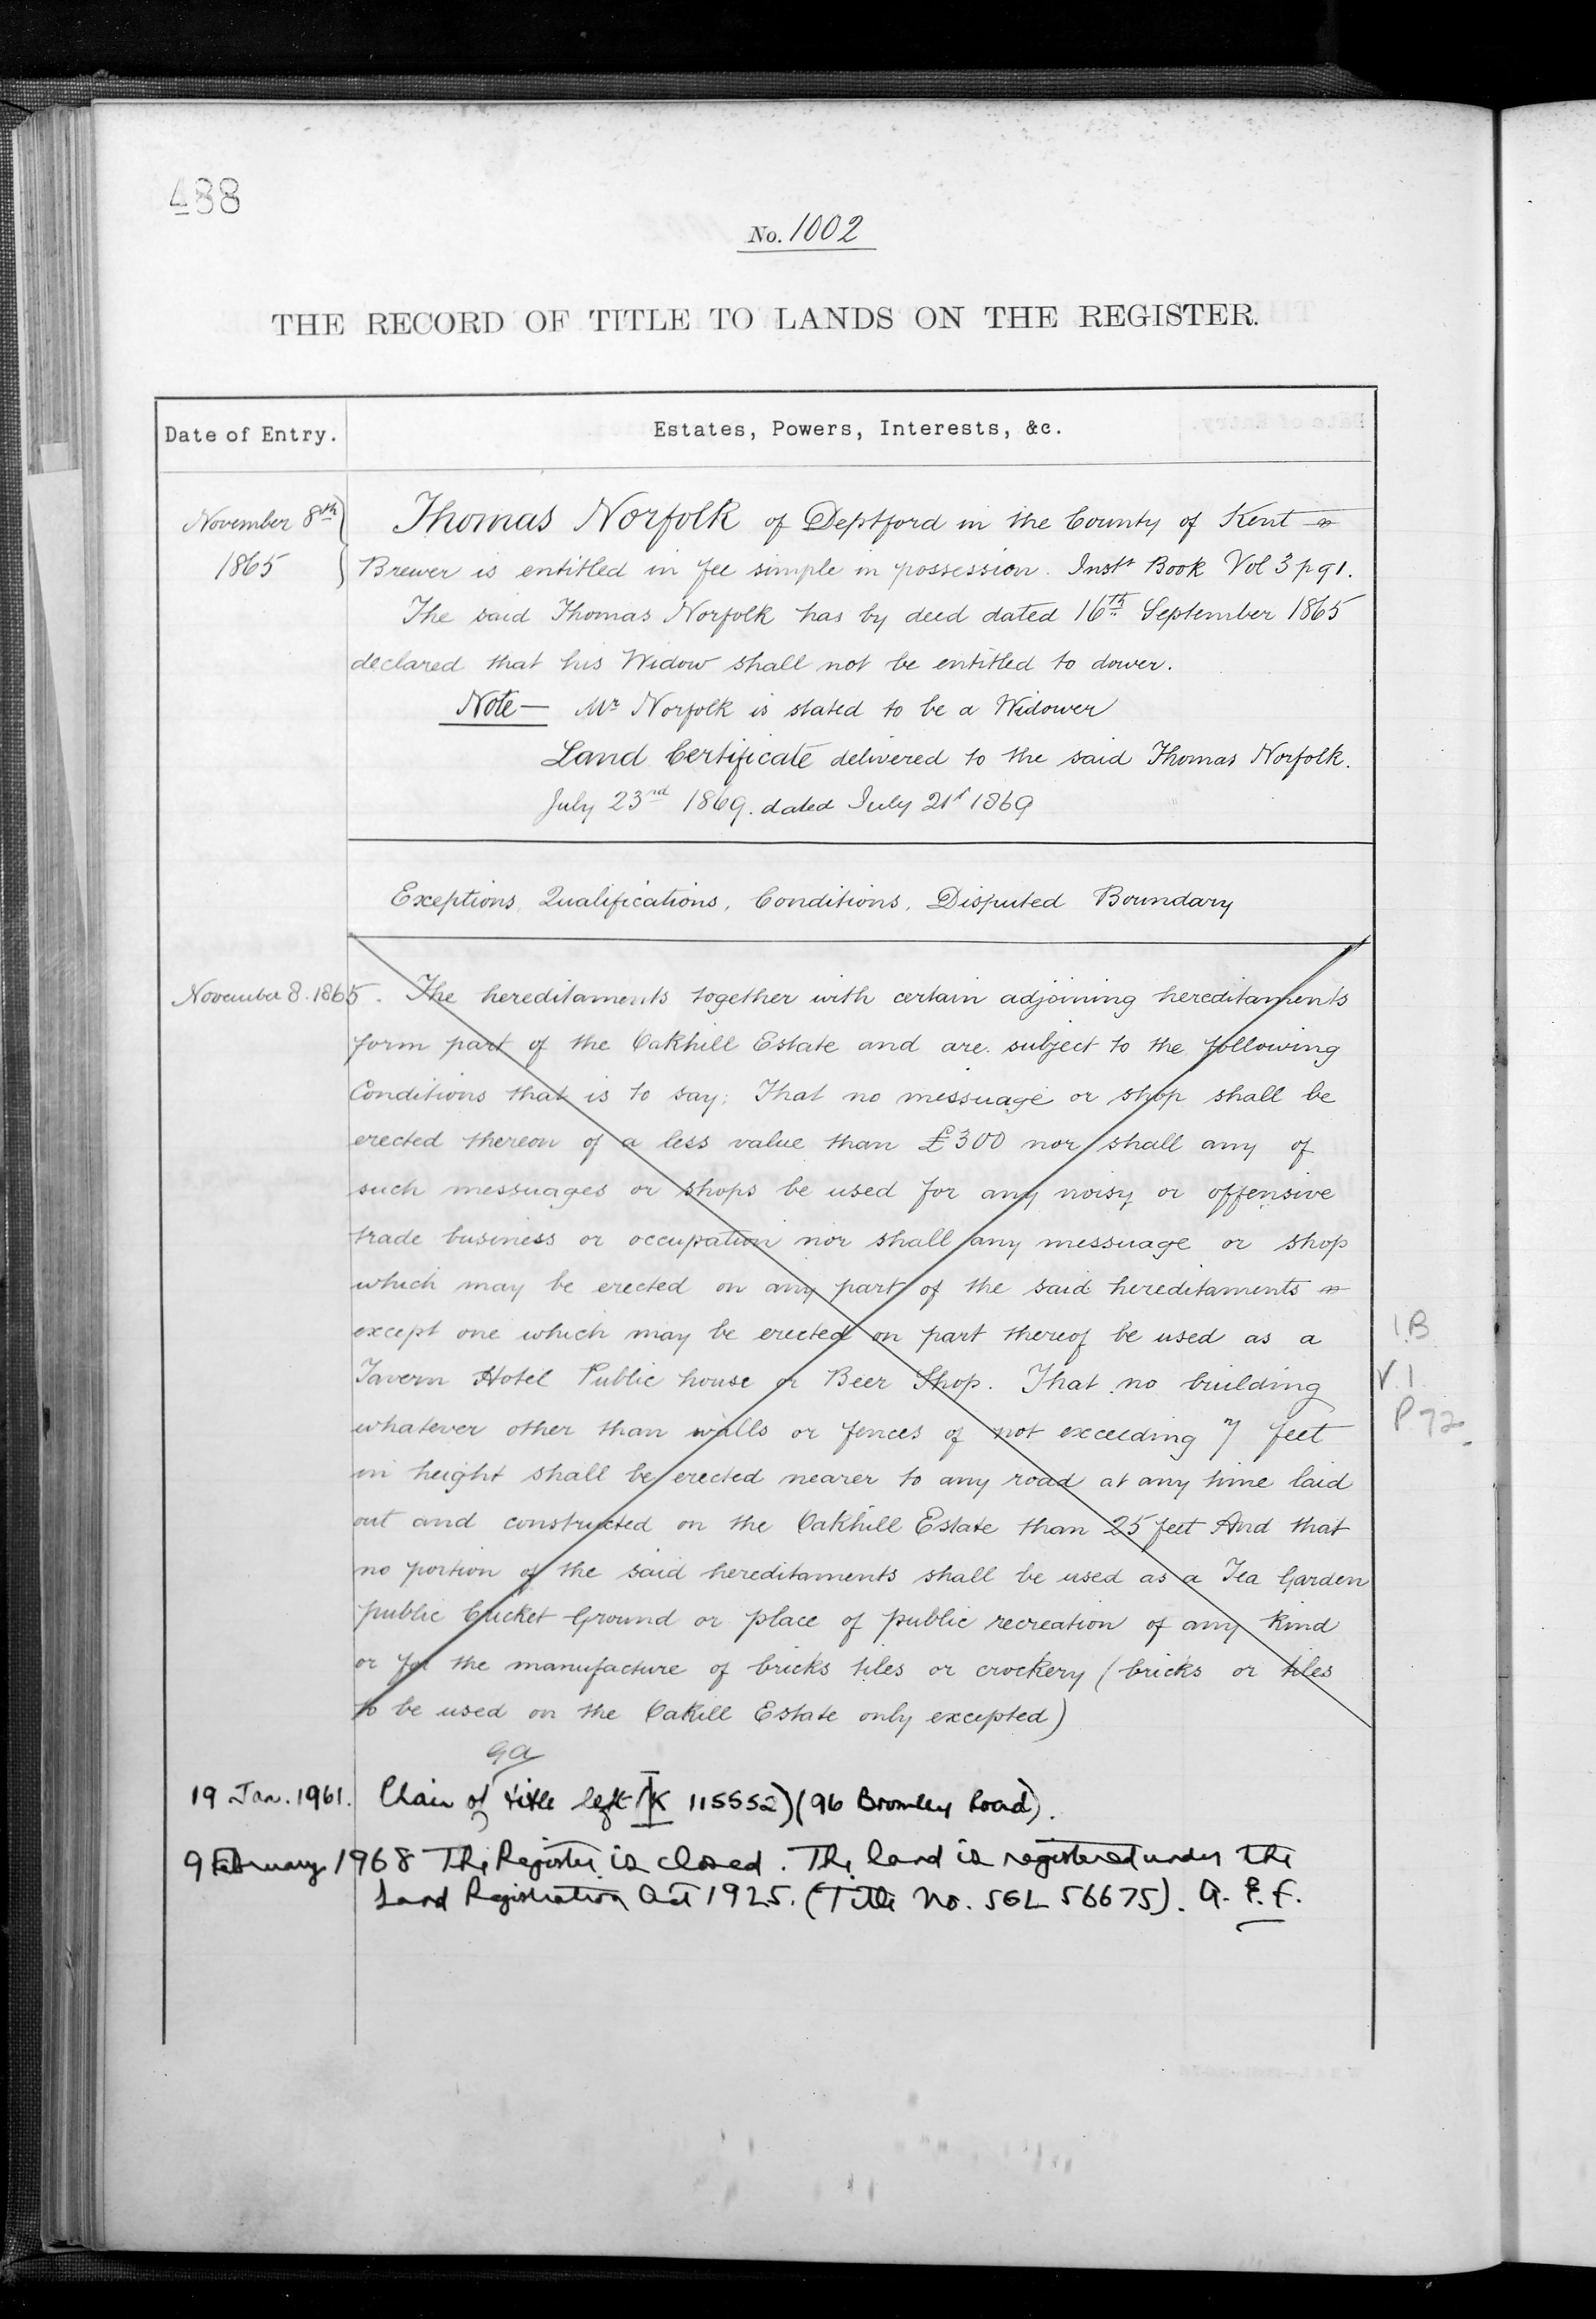 488
No. 1002
THE RECORD OF TITLE TO LANDS ON THE REGISTER.
Date of Entry.
Estates, Powers, Interests, &c.
November 8th
1865
Thomas Norfolk of Deptford in the County of Kent
Brewer is entitled in fee simple in possession. Inst Book Vol 3 p 91.
The said Thomas Norfolk has by deed dated 16th September 1865
declared that his Widow shall not be entitled to dower.
Note — Mr Norfolk is stated to be a Widower
Land Certificate delivered to the said Thomas Norfolk.
July 23rd 1869. dated July 21st 1869
Exceptions, Qualifications, Conditions, Disputed Boundary
November 8. 1865. The hereditaments together with certain adjoining hereditaments
form part of the Oakhill Estate and are subject to the following
Conditions that is to say: That no messuage or shop shall be
erected thereon of a less value than £300 nor shall any of
such messuages or shops be used for any noisy or offensive
trade business or occupation nor shall any messuage or shop
which may be erected on any part of the said hereditaments
except one which may be erected on part thereof be used as a
Tavern Hotel Public house or Beer Shop. That no building
whatever other than walls or fences of not exceeding 7 feet
in height shall be erected nearer to any road at any time laid
out and constructed on the Oakhill Estate than 25 feet And that
no portion of the said hereditaments shall be used as a Tea Garden
public Cricket Ground or place of public recreation of any kind
or for the manufacture of bricks tiles or crockery (bricks or tiles
to be used on the Oakill Estate only excepted)
I.B
V. 1
P 72.
19 Jan. 1961. Chain of title left (K 115552) (96 Bromley Road).
9 February 1968 The Register is closed. The land is registered under the
Land Registration Act 1925. (Title No. SGL 56675).